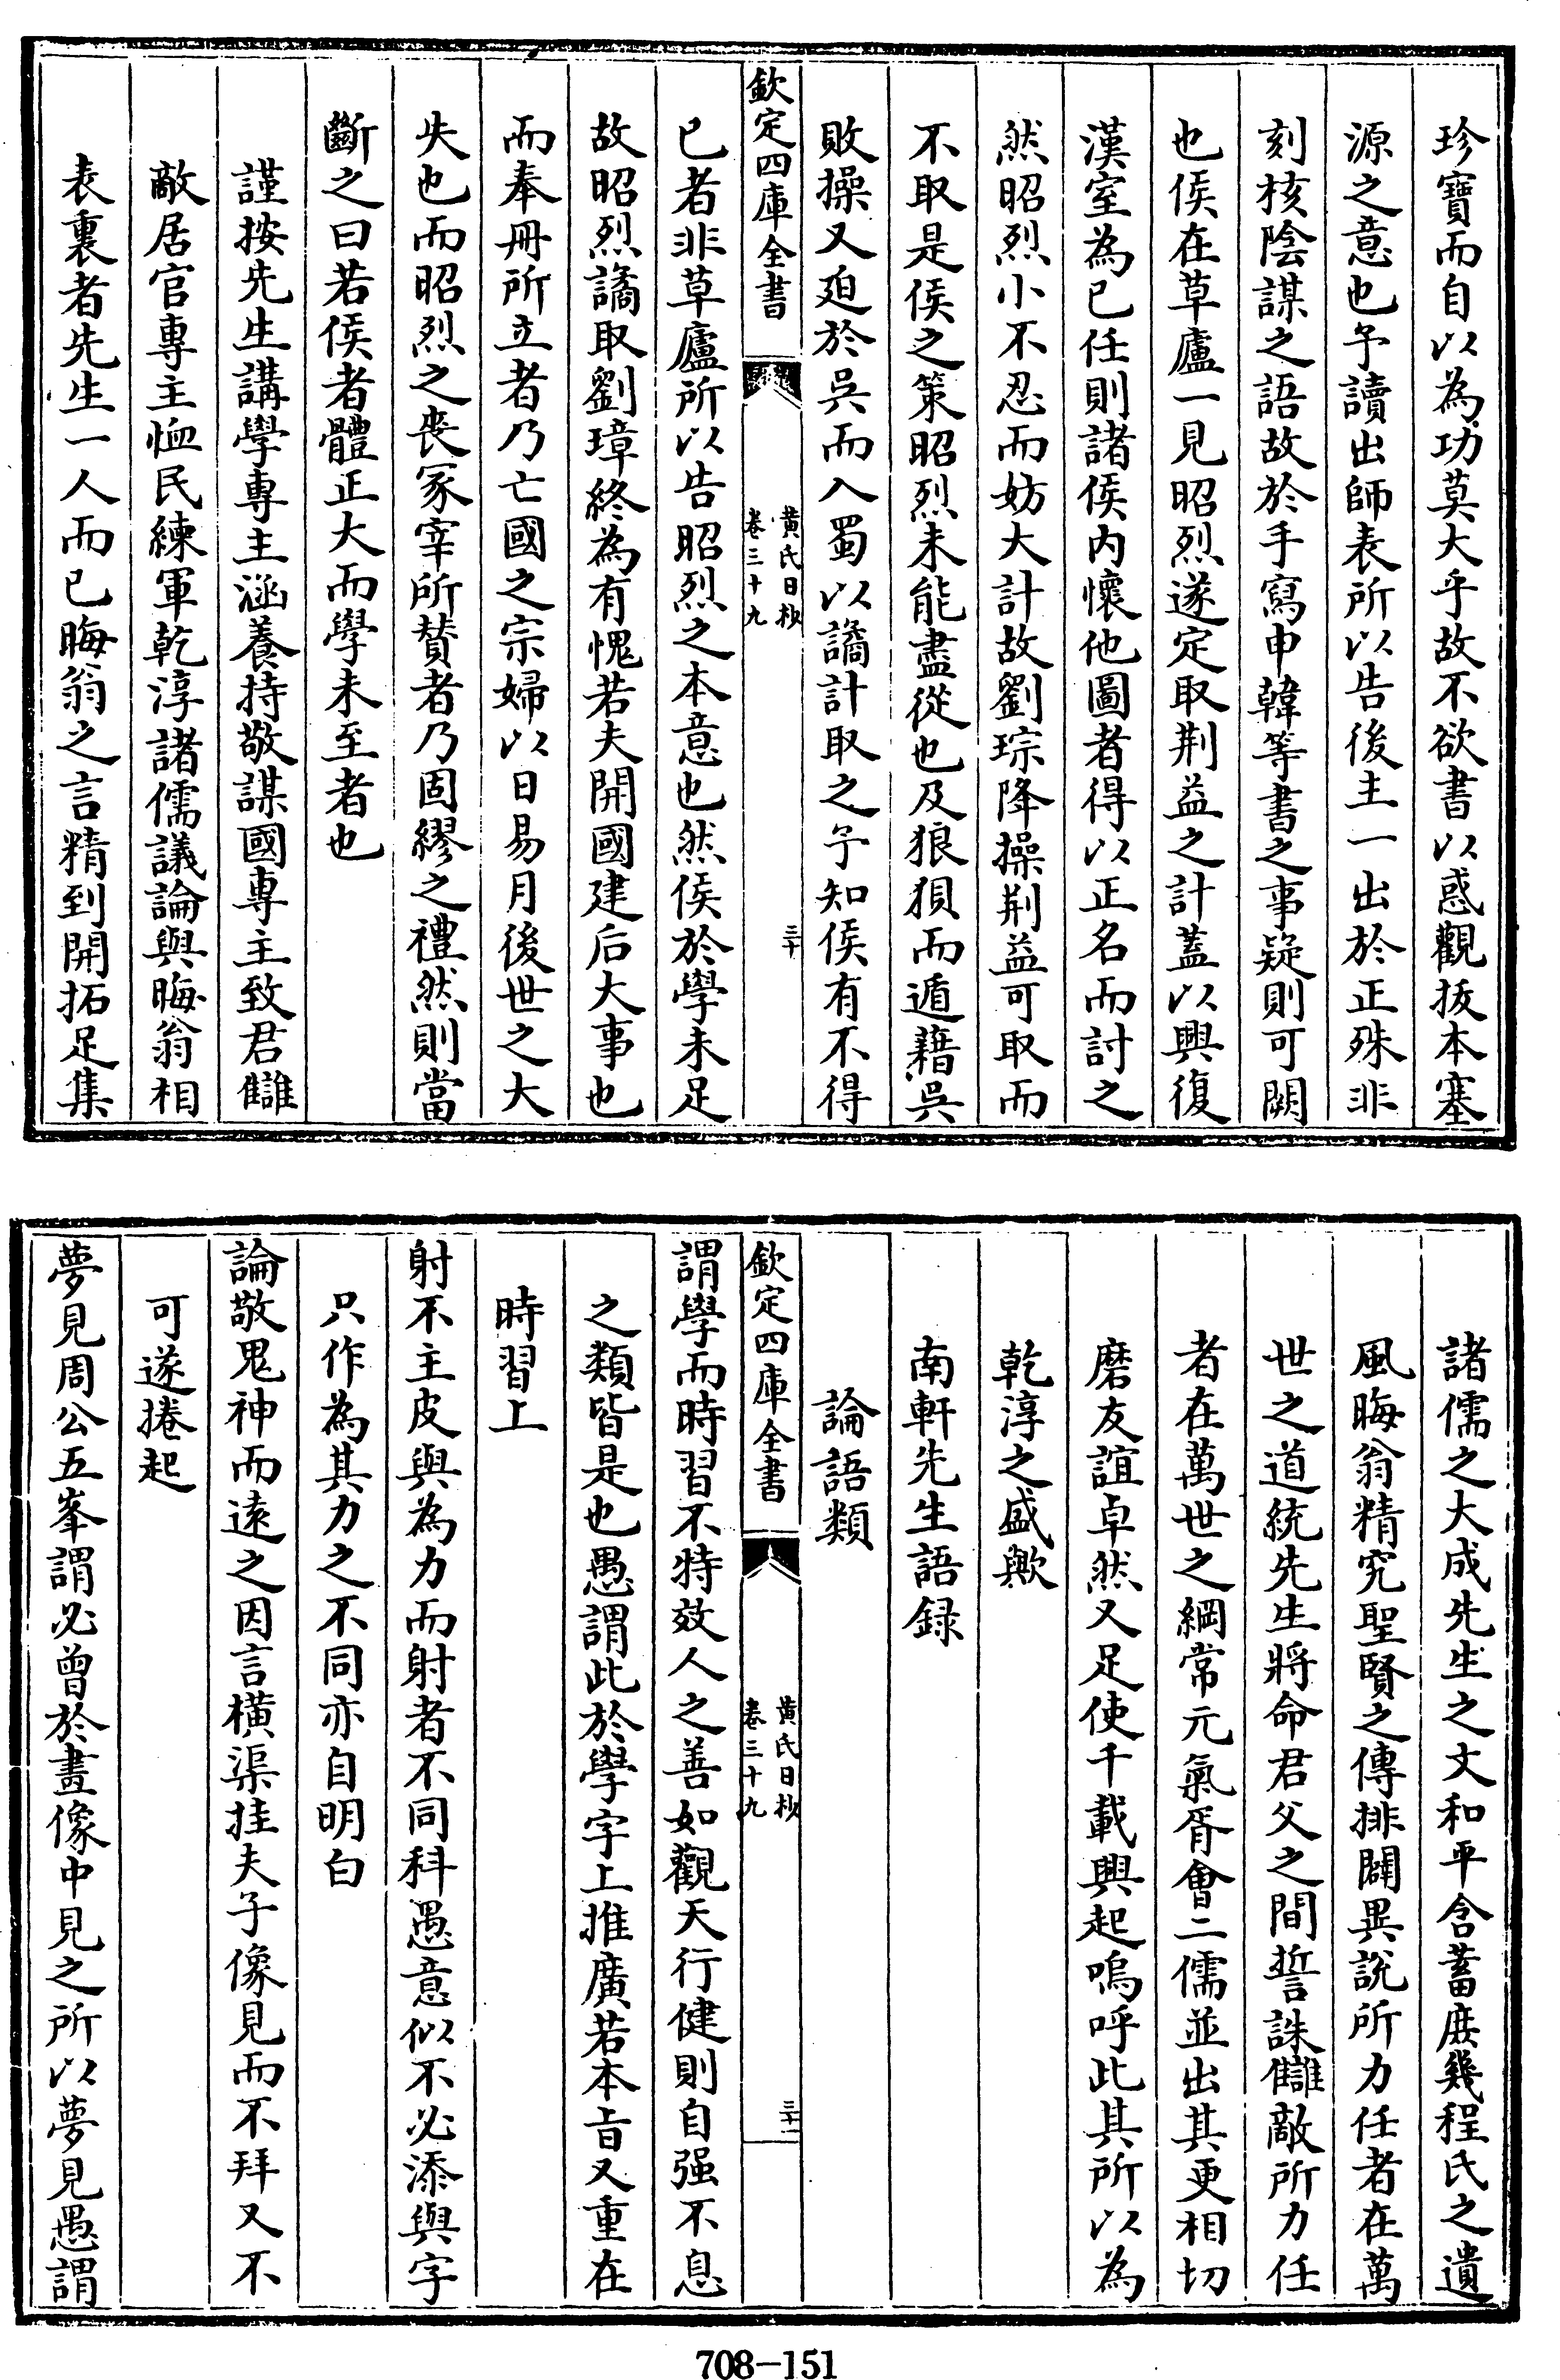 珍寳而自以為功莫大乎故不欲書以惑觀抜本塞
源之意也予讀出師表所以告後主一出於正殊非
刻核陰謀之語故於手寫申韓等書之事疑則可闕
也侯在草廬一見昭烈遂定取荆益之計蓋以興復
漢室為已任則諸侯内懷他圖者得以正名而討之
然昭烈小不忍而妨大計故劉琮降操荆益可取而
不取是侯之策昭烈未能盡從也及狼狽而遁藉吳
敗操又廹於吳而入蜀以譎計取之予知侯有不得
欽定四庫全書
黄氏日抄
卷三十九
三十
已者非草廬所以告昭烈之本意也然侯於學未足
故昭烈譎取劉璋終為有愧若夫開國建后大事也
而奉冊所立者乃亡國之宗婦以日易月後世之大
失也而昭烈之喪冢宰所賛者乃固繆之禮然則當
斷之曰若侯者體正大而學未至者也
謹按先生講學專主涵養持敬謀國專主致君讎
敵居官專主恤民練軍乾淳諸儒議論與晦翁相
表裏者先生一人而已晦翁之言精到開拓足集
諸儒之大成先生之文和平含蓄庶幾程氏之遺
風晦翁精究聖賢之傳排闢異說所力任者在萬
世之道統先生將命君父之間誓誅讎敵所力任
者在萬世之綱常元氣胥會二儒並出其更相切
磨友誼卓然又足使千載興起嗚呼此其所以為
乾淳之盛歟
南軒先生語録
論語類
欽定四庫全書
黄氏日抄
卷三十九
三十一
謂學而時習不特效人之善如觀天行健則自强不息
之類皆是也愚謂此於學字上推廣若本旨又重在
時習上
射不主皮與為力而射者不同科愚意似不必添與字
只作為其力之不同亦自明白
論敬鬼神而遠之因言橫渠挂夫子像見而不拜又不
可遂捲起
夢見周公五峯謂必曾於畫像中見之所以夢見愚謂
708-151